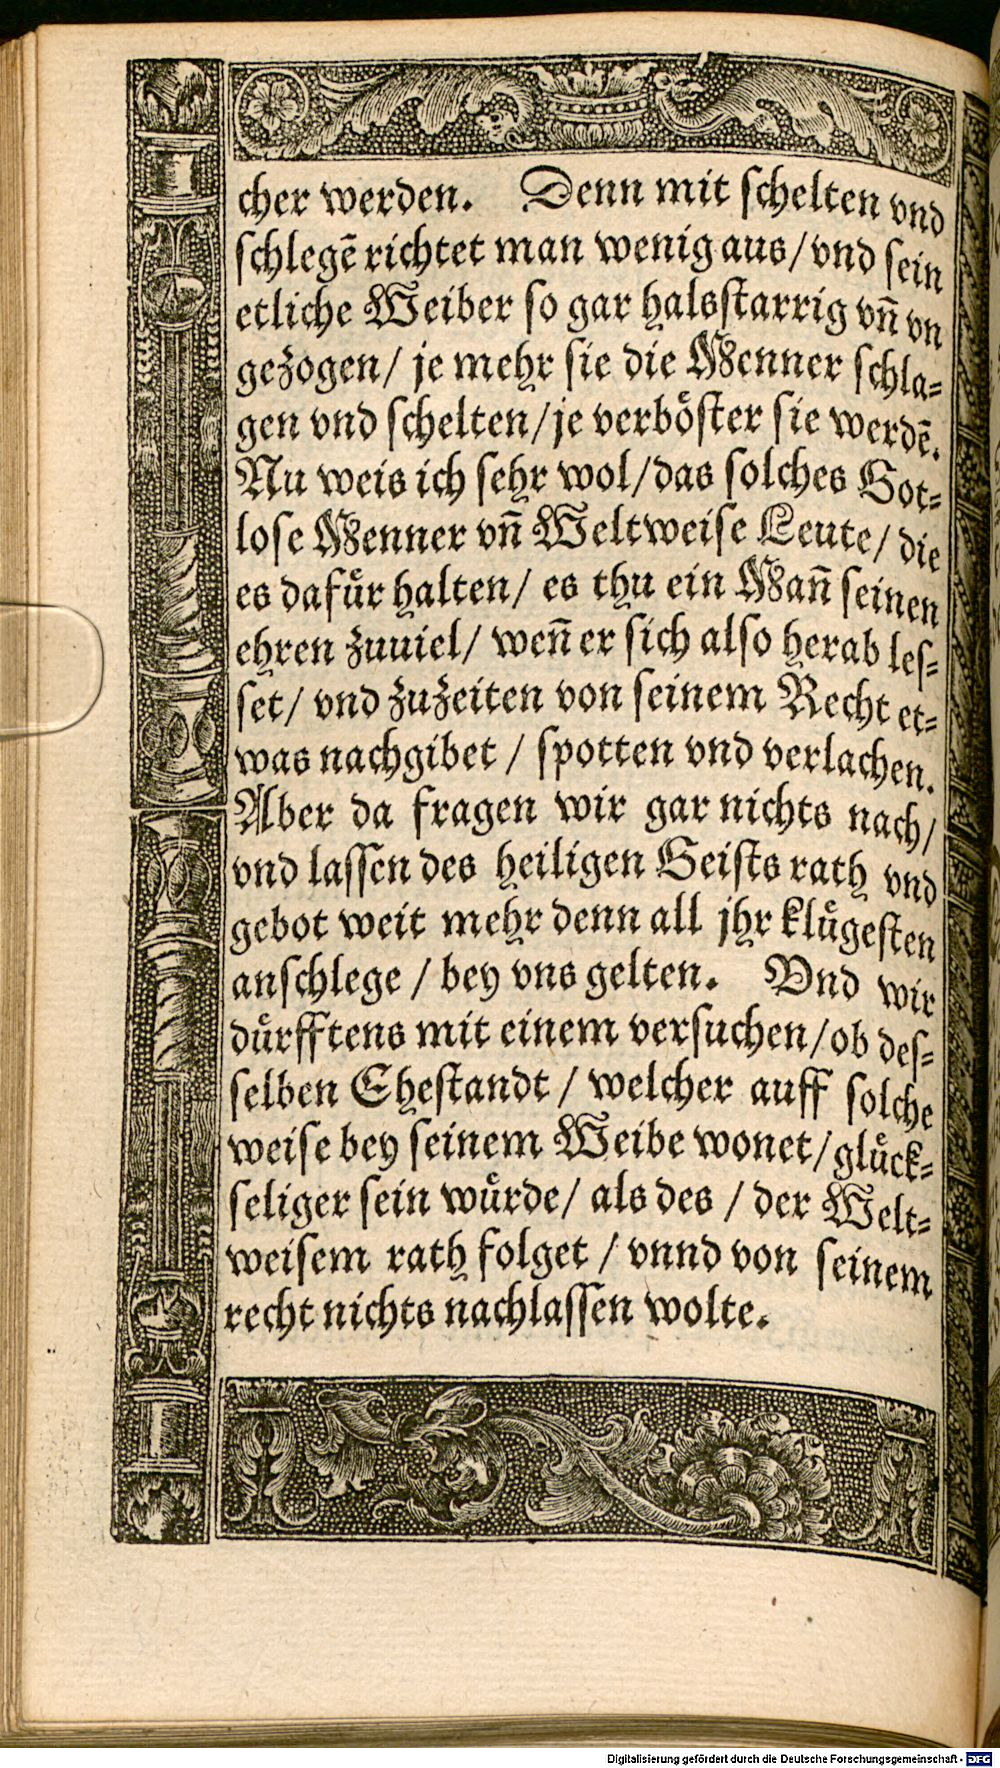 cher werden. Denn mit schelten vnd
schlegẽ richtet man wenig aus/ vnd sein
etliche Weiber so gar halsstarrig vñ vn
gezogen/ je mehr sie die Menner schla-
gen vnd schelten/ je verböster sie werdẽ.
Nu weis ich sehr wol/ das solches Got-
lose Menner vñ Weltweise Leute/ die
es dafuͤr halten/ es thu ein Mañ seinen
ehren zuuiel/ weñ er sich also herab les-
set/ vnd zuzeiten von seinem Recht et-
was nachgibet / spotten vnd verlachen.
Aber da fragen wir gar nichts nach/
vnd lassen des heiligen Geists rath vnd
gebot weit mehr denn all jhr kluͤgesten
anschlege / bey vns gelten. Vnd wir
duͤrfftens mit einem versuchen/ ob des-
selben Ehestandt / welcher auff solche
weise bey seinem Weibe wonet/ gluͤck-
seliger sein wuͤrde/ als des / der Welt-
weisem rath folget / vnnd von seinem
recht nichts nachlassen wolte.
Digitalisierung gefördert durch die Deutsche Forschungsgemeinschaft - DFG